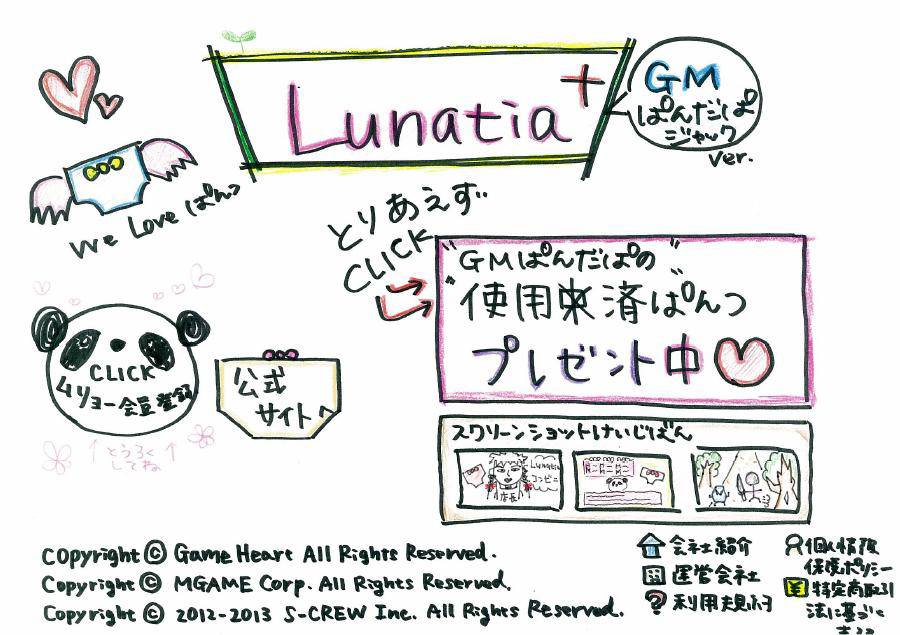 Lunatia+
GM
ぱんだぱ
ジャック
ver.
We Love ぱんつ
とりあえず
CLICK
"GMぱんだぱの"
使用未済ぱんつ
プレゼント中
CLICK
ムリョー会員登録
↑とうろく↑
してね
公式
サイトへ
スクリーンショットけいじばん
Lunatia
コンビニ
店長
copyright © Game Heart All Rights Reserved.
Copyright © MGAME Corp. All Rights Reserved.
Copyright © 2012-2013 S-CREW Inc. All Rights Reserved.
会社紹介
運営会社
? 利用規約
個人情報
保護ポリシー
¥ 特定商取引
法に基づく